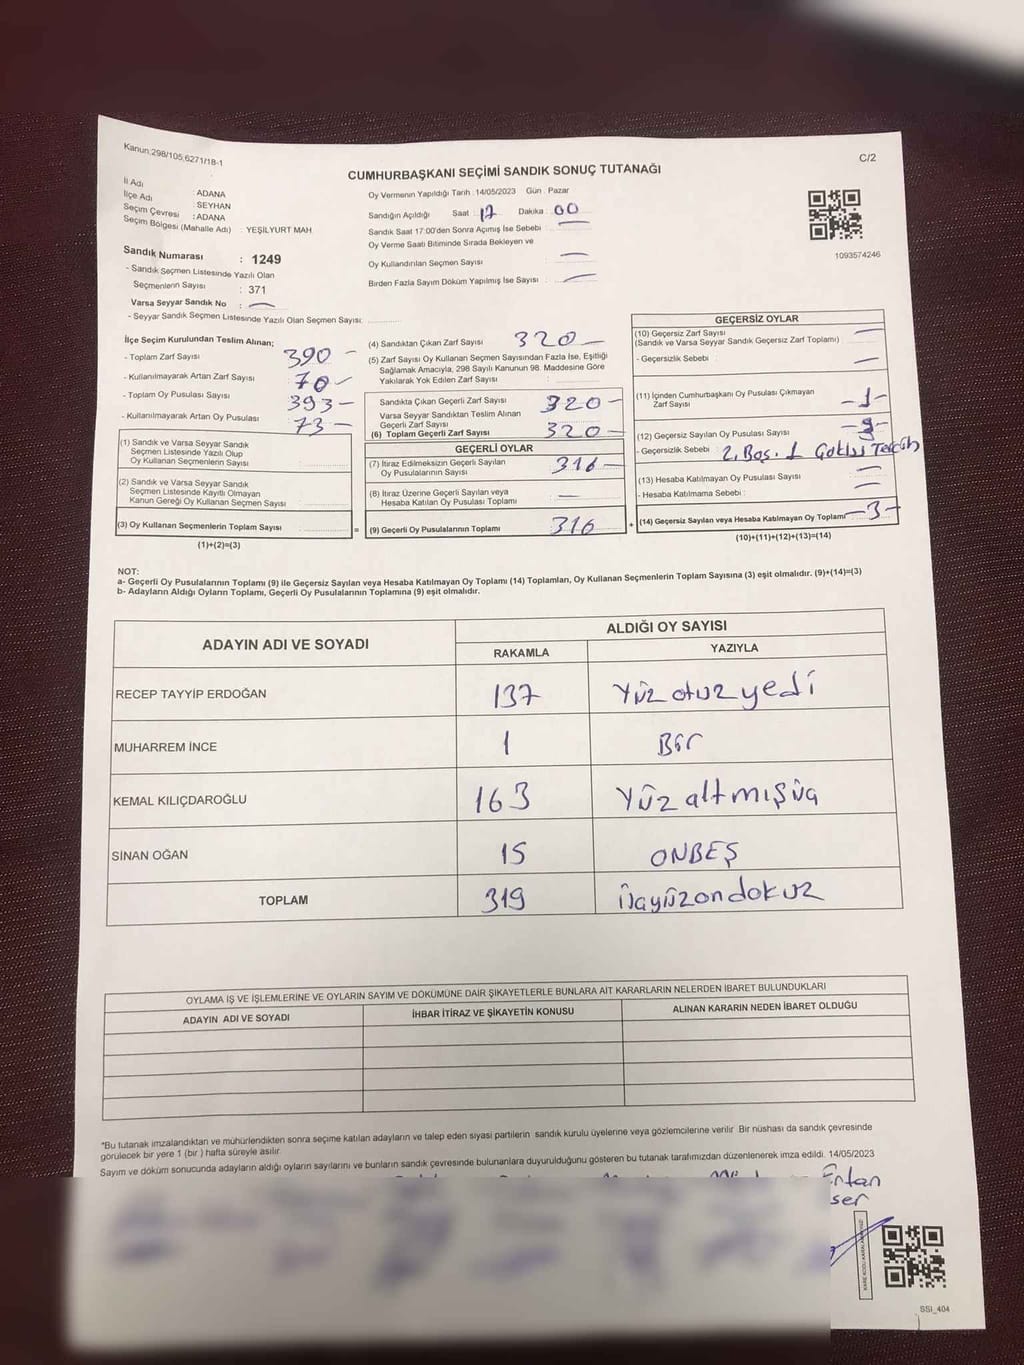 Kanun:298/105,6271/18-1
C/2
CUMHURBAŞKANI SEÇİMİ SANDIK SONUÇ TUTANAĞI
İl Adı : ADANA
İlçe Adı : SEYHAN
Seçim Çevresi : ADANA
Seçim Bölgesi (Mahalle Adı) : YEŞİLYURT MAH
Sandık Numarası : 1249
- Sandık Seçmen Listesinde Yazılı Olan
Seçmenlerin Sayısı : 371
Varsa Seyyar Sandık No : —
- Seyyar Sandık Seçmen Listesinde Yazılı Olan Seçmen Sayısı:
Oy Vermenin Yapıldığı Tarih : 14/05/2023 Gün : Pazar
Sandığın Açıldığı Saat : 17 Dakika : 00
Sandık Saat 17:00'den Sonra Açımış İse Sebebi :
Oy Verme Saati Bitiminde Sırada Bekleyen ve
Oy Kullandırılan Seçmen Sayısı : —
Birden Fazla Sayım Döküm Yapılmış İse Sayısı : —
1093574246
İlçe Seçim Kurulundan Teslim Alınan;
- Toplam Zarf Sayısı 390 —
- Kullanılmayarak Artan Zarf Sayısı 70 —
- Toplam Oy Pusulası Sayısı 393 —
- Kullanılmayarak Artan Oy Pusulası 73 —
(1) Sandık ve Varsa Seyyar Sandık
Seçmen Listesinde Yazılı Olup
Oy Kullanan Seçmenlerin Sayısı
(2) Sandık ve Varsa Seyyar Sandık
Seçmen Listesinde Kayıtlı Olmayan
Kanun Gereği Oy Kullanan Seçmen Sayısı
(3) Oy Kullanan Seçmenlerin Toplam Sayısı =
(1)+(2)=(3)
(4) Sandıktan Çıkan Zarf Sayısı 320 —
(5) Zarf Sayısı Oy Kullanan Seçmen Sayısından Fazla İse, Eşitliği
Sağlamak Amacıyla, 298 Sayılı Kanunun 98. Maddesine Göre
Yakılarak Yok Edilen Zarf Sayısı :
Sandıkta Çıkan Geçerli Zarf Sayısı 320 —
Varsa Seyyar Sandıktan Teslim Alınan
Geçerli Zarf Sayısı
(6) Toplam Geçerli Zarf Sayısı 320 —
GEÇERLİ OYLAR
(7) İtiraz Edilmeksizin Geçerli Sayılan
Oy Pusulalarının Sayısı 316 —
(8) İtiraz Üzerine Geçerli Sayılan veya
Hesaba Katılan Oy Pusulası Toplamı —
(9) Geçerli Oy Pusulalarının Toplamı 316 +
GEÇERSİZ OYLAR
(10) Geçersiz Zarf Sayısı —
(Sandık ve Varsa Seyyar Sandık Geçersiz Zarf Toplamı)
- Geçersizlik Sebebi : —
(11) İçinden Cumhurbaşkanı Oy Pusulası Çıkmayan
Zarf Sayısı —1—
(12) Geçersiz Sayılan Oy Pusulası Sayısı
- Geçersizlik Sebebi :
(13) Hesaba Katılmayan Oy Pusulası Sayısı —
- Hesaba Katılmama Sebebi : —
(14) Geçersiz Sayılan veya Hesaba Katılmayan Oy Toplamı —3—
(10)+(11)+(12)+(13)=(14)
NOT:
a- Geçerli Oy Pusulalarının Toplamı (9) ile Geçersiz Sayılan veya Hesaba Katılmayan Oy Toplamı (14) Toplamları, Oy Kullanan Seçmenlerin Toplam Sayısına (3) eşit olmalıdır. (9)+(14)=(3)
b- Adayların Aldığı Oyların Toplamı, Geçerli Oy Pusulalarının Toplamına (9) eşit olmalıdır.
ADAYIN ADI VE SOYADI ALDIĞI OY SAYISI
RAKAMLA YAZIYLA
RECEP TAYYİP ERDOĞAN 137 Yüz otuz yedi
MUHARREM İNCE 1 Bir
KEMAL KILIÇDAROĞLU 163 Yüz altmışüç
SİNAN OĞAN 15 ONBEŞ
TOPLAM 319 üçyüzondokuz
OYLAMA İŞ VE İŞLEMLERİNE VE OYLARIN SAYIM VE DÖKÜMÜNE DAİR ŞİKAYETLERLE BUNLARA AİT KARARLARIN NELERDEN İBARET BULUNDUKLARI
ADAYIN ADI VE SOYADI İHBAR İTİRAZ VE ŞİKAYETİN KONUSU ALINAN KARARIN NEDEN İBARET OLDUĞU
*Bu tutanak imzalandıktan ve mühürlendikten sonra seçime katılan adayların ve talep eden siyasi partilerin sandık kurulu üyelerine veya gözlemcilerine verilir. Bir nüshası da sandık çevresinde
görülecek bir yere 1 (bir ) hafta süreyle asılır.
Sayım ve döküm sonucunda adayların aldığı oyların sayılarını ve bunların sandık çevresinde bulunanlara duyurulduğunu gösteren bu tutanak tarafımızdan düzenlenerek imza edildi. 14/05/2023
Ertan
ser
SSI_404